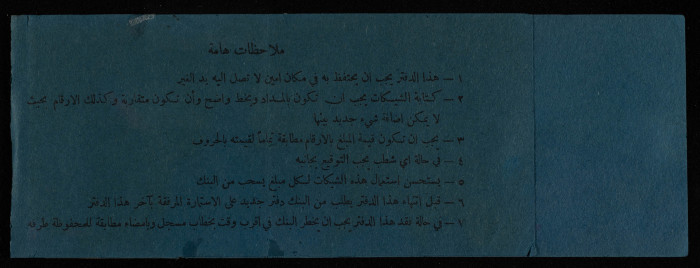 ملاحظات هامة
١ — هذا الدفتر يجب ان يحتفظ به في مكان امين لا تصل إليه يد الغير
٢ — كتابة الشيكات يجب ان تكون بالمداد وبخط واضح وأن تكون متقاربة وكذلك الارقام بحيث
لا يمكن اضافة شيء جديد بينها
٣ — يجب ان تكون قيمة المبلغ بالارقام مطابقة تماماً لقيمته بالحروف
٤ — في حالة اي شطب يجب التوقيع بجانبه
٥ — يستحسن استعمال هذه الشيكات لكل مبلغ يسحب من البنك
٦ — قبل إنتهاء هذا الدفتر يطلب من البنك دفتر جديد على الاستمارة المرفقة بآخر هذا الدفتر
٧ — في حالة فقد هذا الدفتر يجب ان يخطر البنك في اقرب وقت بخطاب مسجل وبامضاء مطابقة للمحفوظة طرفه